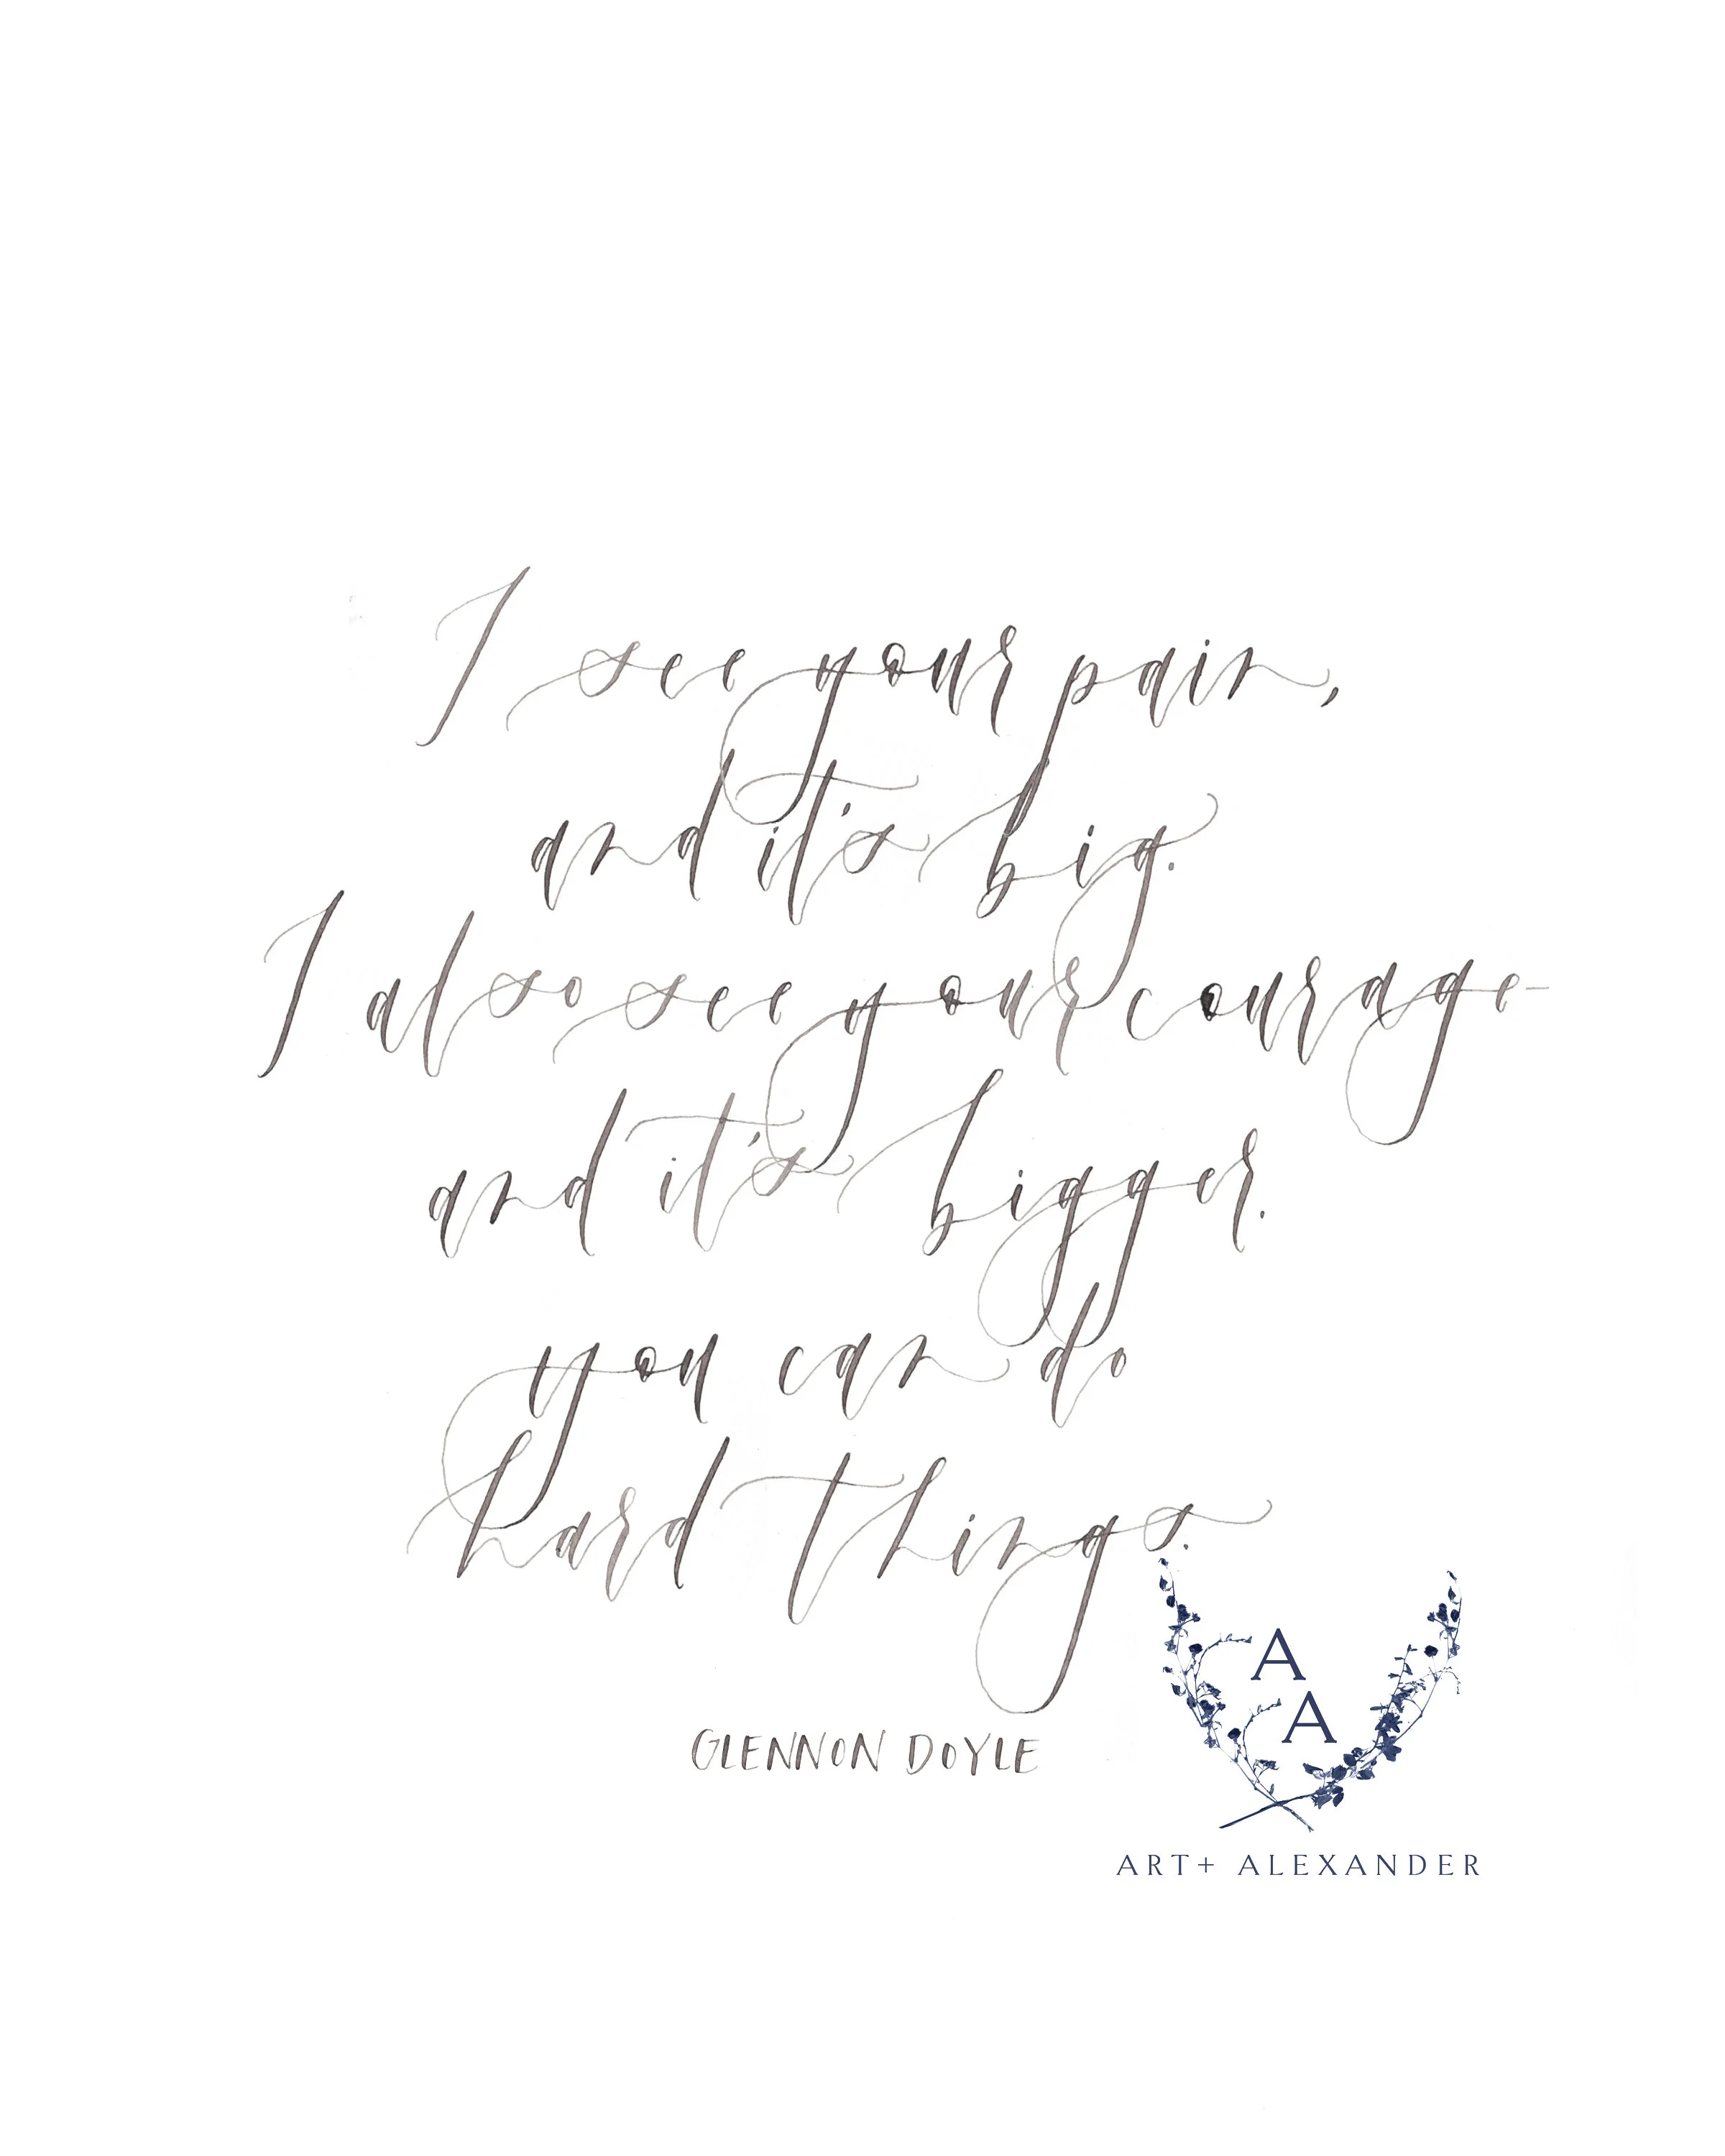 I see your pain,
and it's big.
I also see your courage-
and it's bigger.
you can do
hard things.
GLENNON DOYLE
A
A
ART+ ALEXANDER